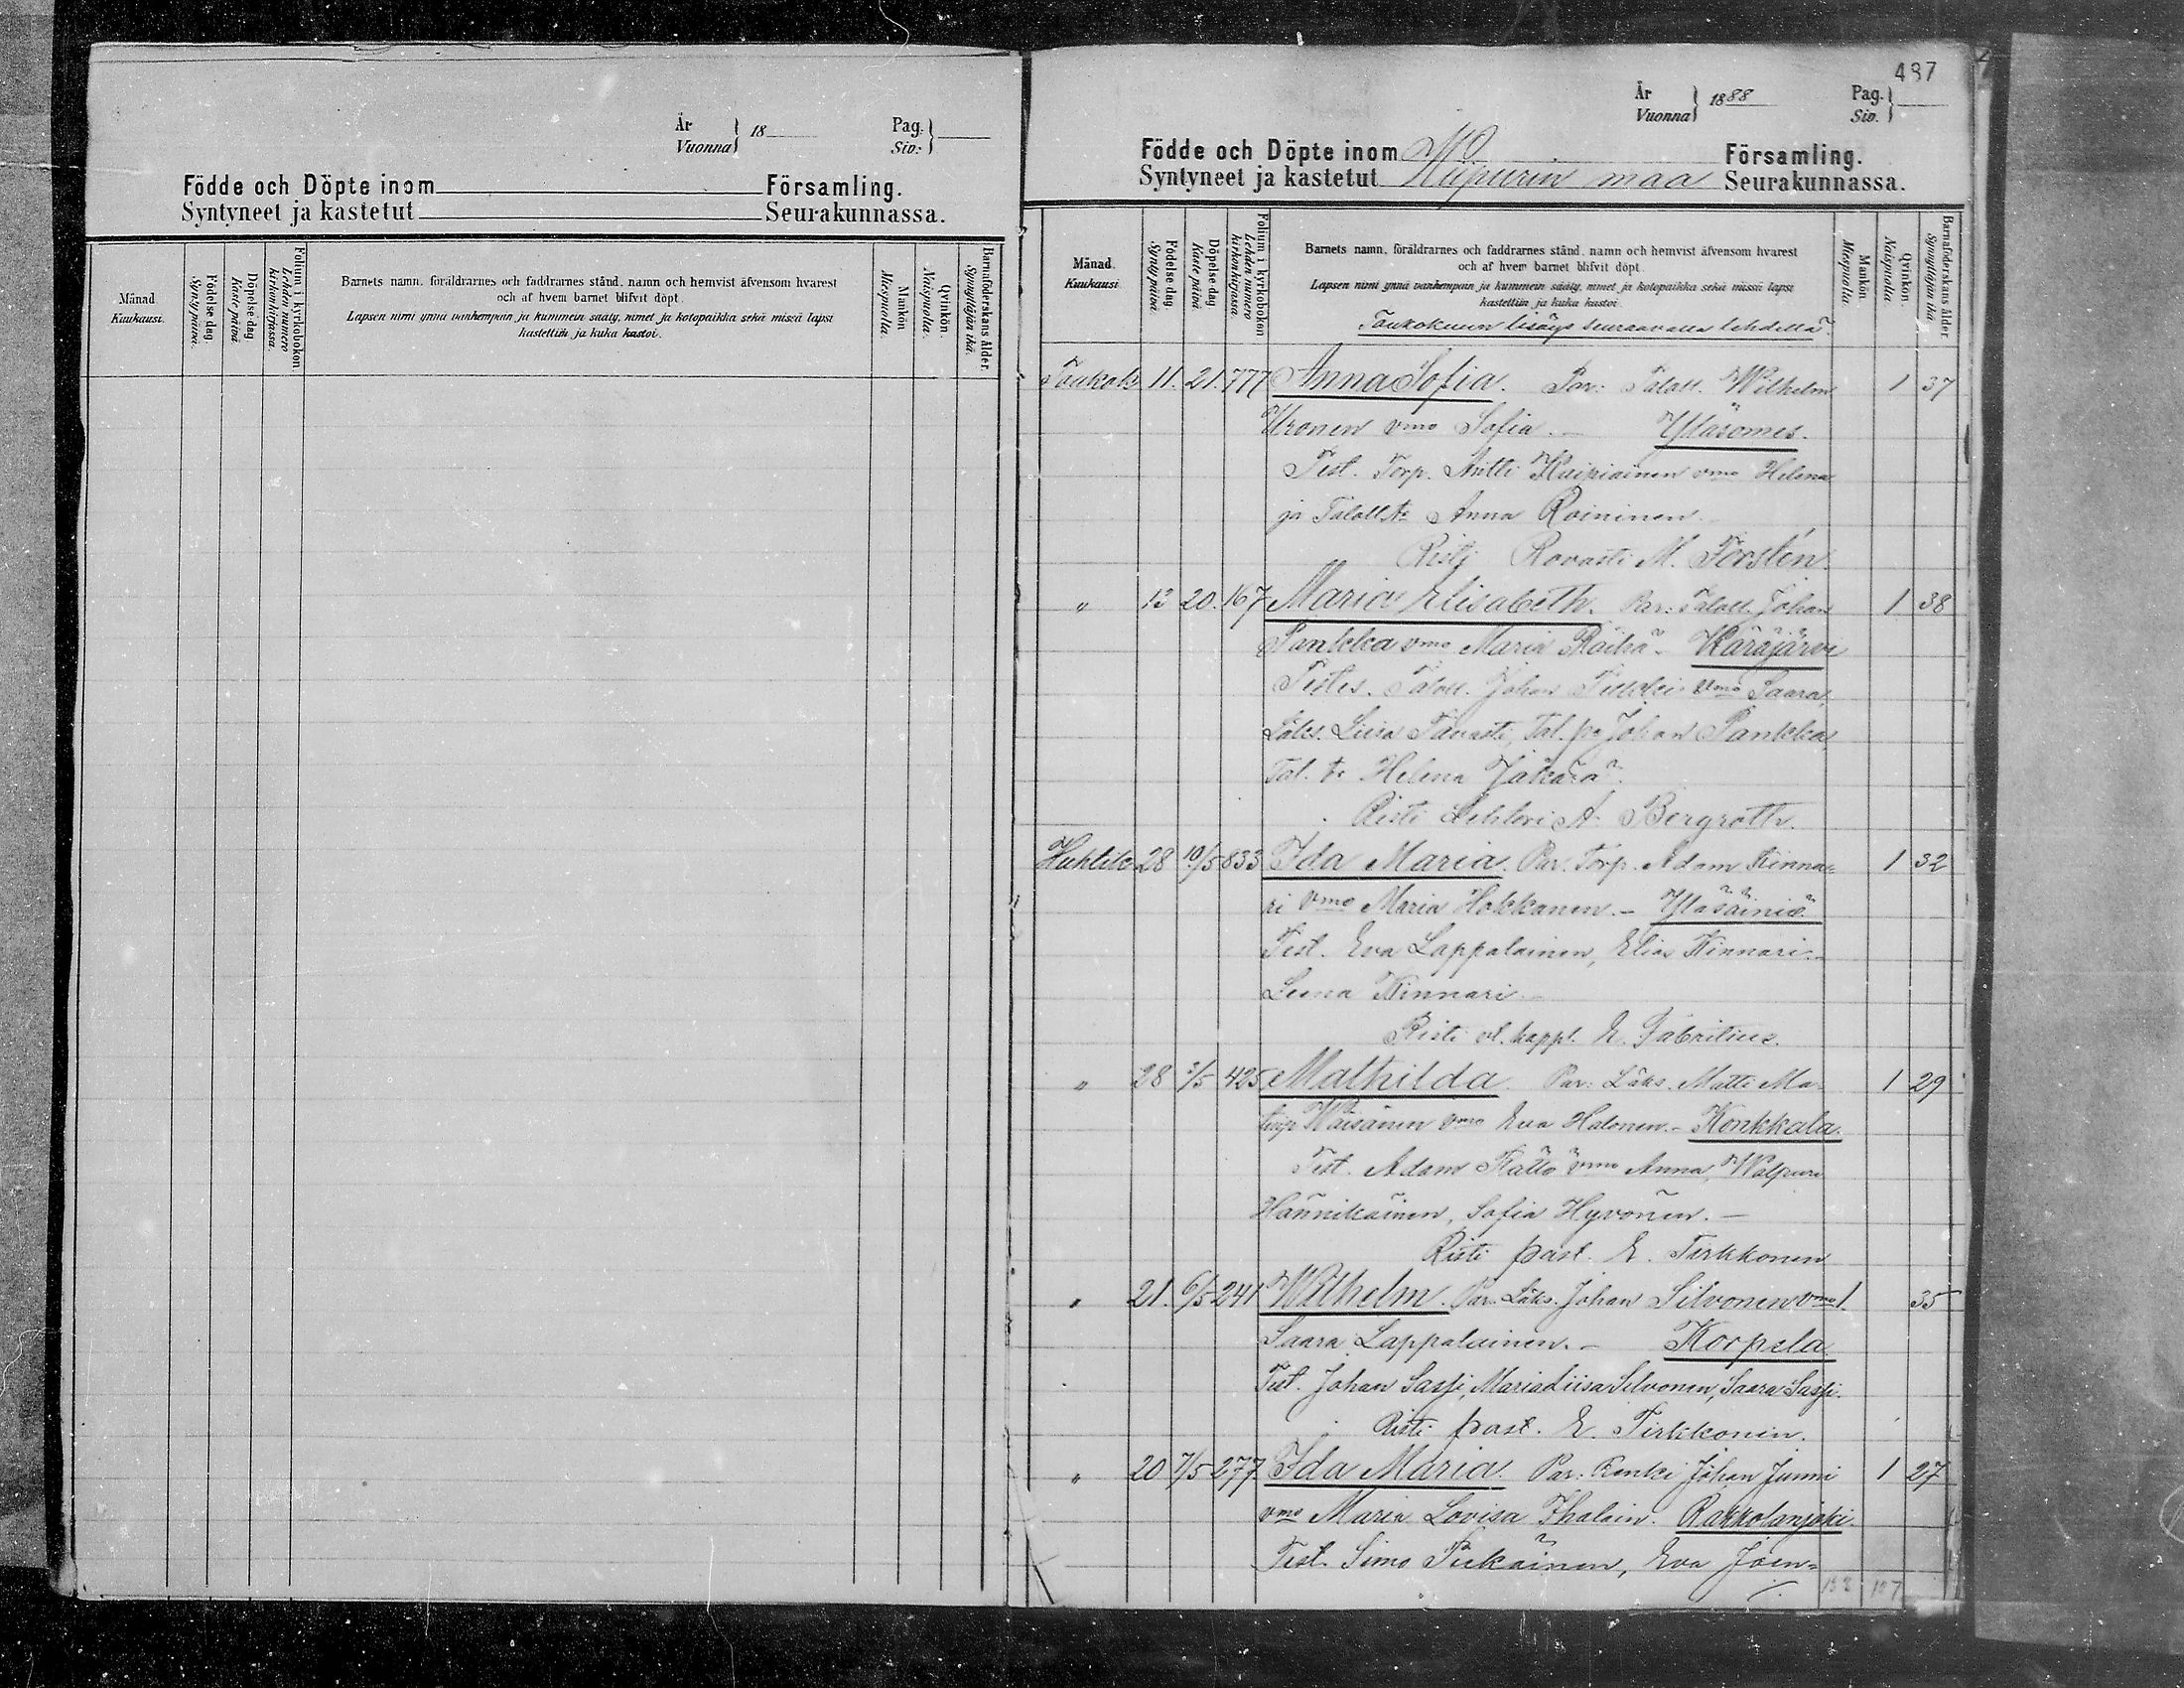 År
Vuonna } 18
Pag.
Siv: }
Födde och Döpte inom Församling.
Syntyneet ja kastetut Seurakunnassa.
Månad.
Kuukausi.
Födelse dag.
Synty päivä.
Döpelse dag
Kaste päivä.
Folium i kyrkobokon
Lehden numero
kirkonkirjassa.
Barnets namn, föräldrarnes och faddrarnes stånd, namn och hemvist äfvensom hvarest
och af hvem barnet blifvit döpt.
Lapsen nimi ynnä vanhempain ja kummein sääty, nimet ja kotopaikka sekä missä lapsi
kastettiin ja kuka kastoi.
Mankön
Miespuolia.
Qvinkön.
Naispuolia.
Barnaföderskans ålder.
Synnyttäjän ikä.
487
År
Vuonna } 1888
Pag.
Siv. }
Födde och Döpte inom Församling.
Syntyneet ja kastetut Wiipurin maa Seurakunnassa.
Månad.
Kuukausi
Födelse dag.
Synty päivä.
Döpelse dag
Kaste päivä.
Folium i kyrkobokon
Lehden numero
kirkonkirjassa.
Barnets namn, föräldrarnes och faddrarnes stånd, namn och hemvist äfvensom hvarest
och af hvem barnet blifvit döpt.
Lapsen nimi ynnä vanhempain ja kummein sääty, nimet ja kotopaikka sekä missä lapsi
kastettiin ja kuka kastoi.
Mankön
Miespuolia
Qvinkön.
Naispuolia.
Barnaföderskans ålder
Synnyttäjän ikä
Toukokuun lisäys seuraavalla lehdellä.
Toukok 11. 21. 777 Anna Sofia. Par: Taloll. Wilhelm 1 37
Uronen vmo Sofia. – Yläsomes.
Test. Torp. Antti Kaipiainen vmo Helena
ja Taloll. tr Anna Roininen.
Risti Rovasti M. Forstén.
" 13 20. 167 Maria Elisabeth. Par: Taloll. Johan 1 38
Pankka vmo Maria Räihä. Käräjärvi
Testes. Taloll. Johan Tukki vmo Saara,
Läks. Liisa Tavasti, Tal. po Johan Pankka,
Tal. tr Helena Jäkärä.
Risti Lehtori A. Bergroth.
Huhtik 28 10/5 833 Ida Maria. Par. Torp. Adam Kinna= 1 32
ri vmo Maria Hokkanen. – Yläsäiniö
Test. Eva Lappalainen, Elias Kinnari –
Leena Kinnari –
Risti vt. kappl. E. Fabritius.
" 28 2/5 425 Mathilda Par: Läks. Matti Ma= 1 29
tinp. Wäisänen vmo Eva Halonen. – Konkkala.
Test. Adam Rättö vmo Anna, Walpuri
Hännikäinen, Sofia Hyvönen. –
Risti past. E. Tirkkonen
" 21. 6/5 241 Wilhelm. Par. Läks. Johan Silvonen vmo 1. 35
Saara Lappalainen. – Korpela
Test. Johan Sassi, Maria Liisa Silvonen, Saara Sassi.
Risti past. E. Tirkkonen.
" 20 7/5 277 Ida Maria. Par: Renki Johan Junni 1 27
vmo Maria Lovisa Ihalain. Rakkolanjoki.
Test. Simo Pukäinen, Eva Joen=